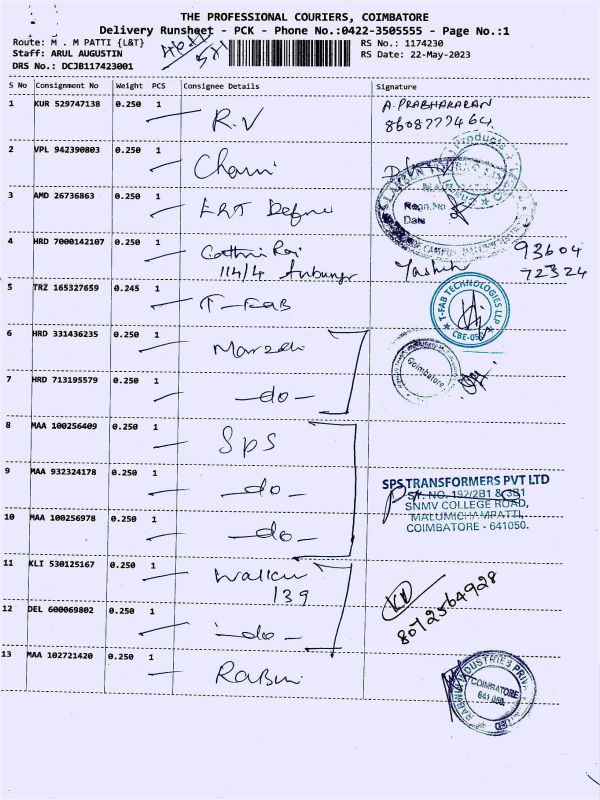 THE PROFESSIONAL COURIERS, COIMBATORE
Delivery Runsheet - PCK - Phone No.:0422-3505555 - Page No.:1
Route: M . M PATTI {L&T} RS No.: 1174230
Staff: ARUL AUGUSTIN RS Date: 22-May-2023
DRS No.: DCJB117423001
S No Consignment No Weight PCS Consignee Details Signature
1 KUR 529747138 0.250 1 R.V A. PRABHAKARAN
8608777464
2 VPL 942390803 0.250 1
3 AMD 26736863 0.250 1 Regn.No
Date
4 HRD 7000142107 0.250 1 93604
114/4 72324
5 TRZ 165327659 0.245 1 T-FAB
T-FAB TECHNOLOGIES LLP
CBE-05
6 HRD 331436235 0.250 1
Coimbatore
7 HRD 713195579 0.250 1 -do-
8 MAA 100256409 0.250 1 SPS
9 MAA 932324178 0.250 1 -do-
SPS TRANSFORMERS PVT LTD
SF. NO. 192/2B1 & 3B1
SNMV COLLEGE ROAD,
MALUMICHAMPATTI,
COIMBATORE - 641050.
10 MAA 100256978 0.250 1 -do-
11 KLI 530125167 0.250 1
139
12 DEL 600069802 0.250 1 -do- 8072564928
13 MAA 102721420 0.250 1
COIMBATORE
641 050.